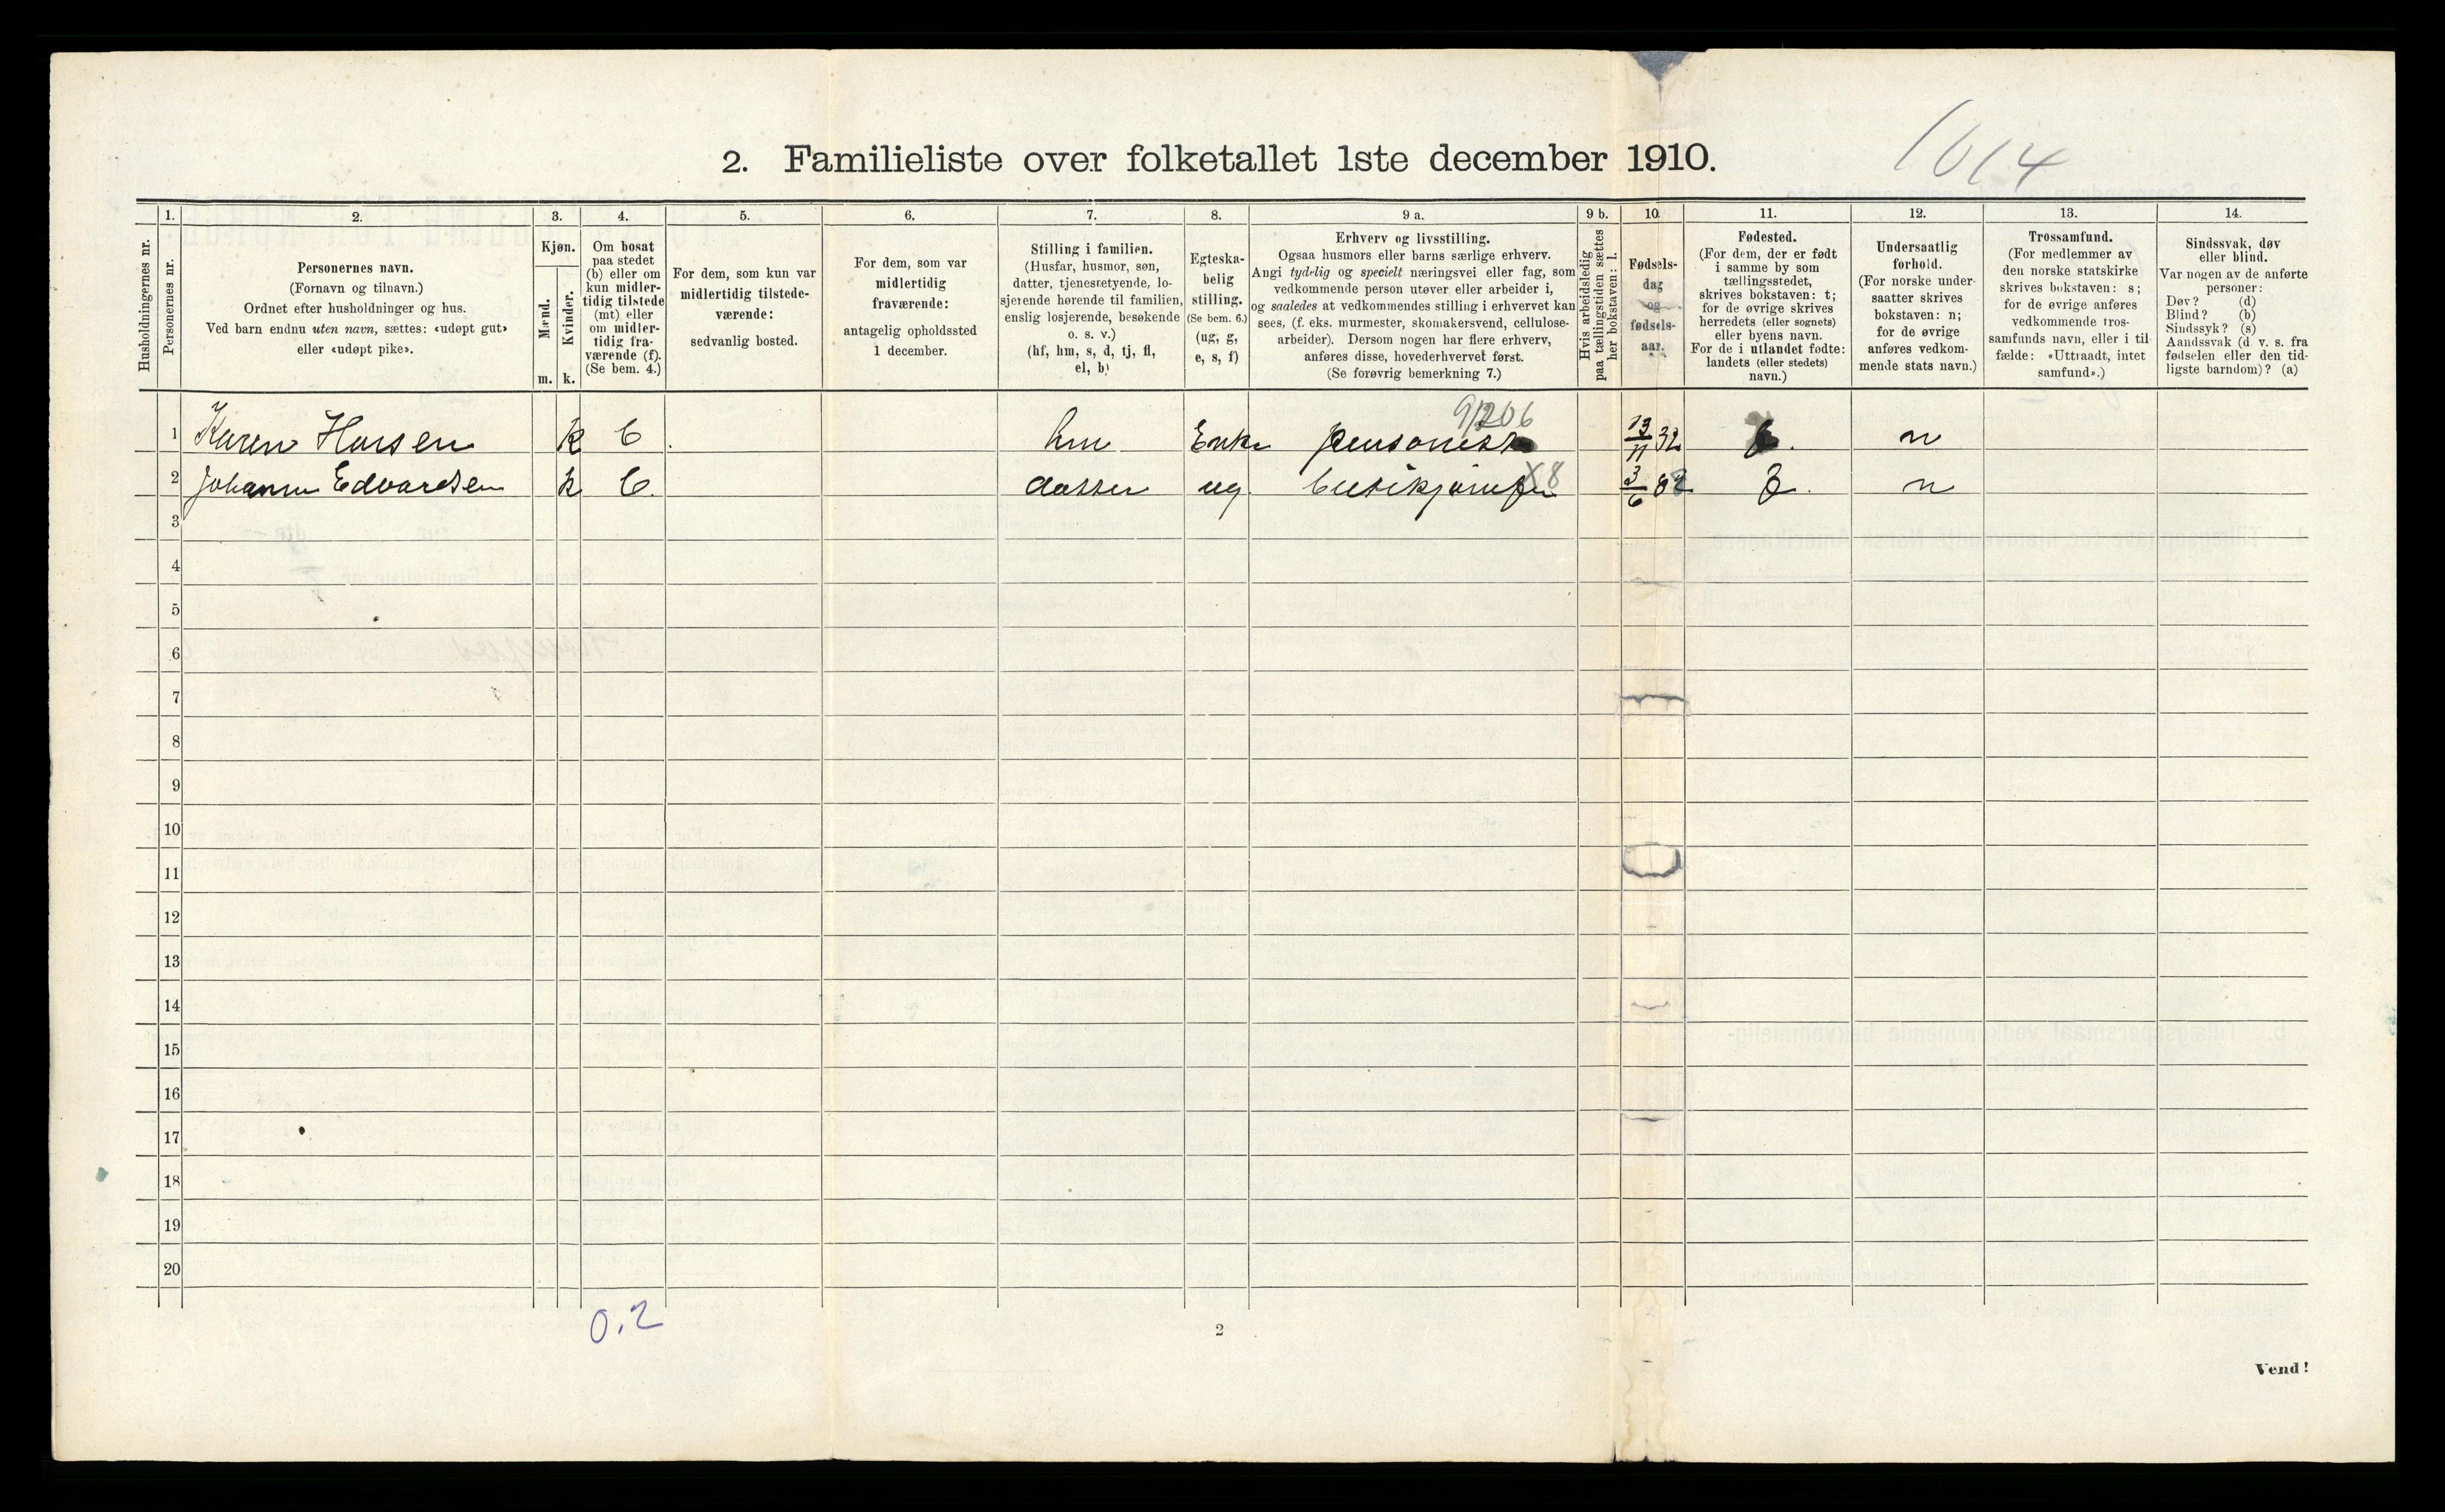 2. Familieliste over folketallet 1ste december 1910.
1614
Husholdningernes nr.
1.
Personernes nr.
2.
Personernes navn.
(Fornavn og tilnavn.)
Ordnet efter husholdninger og hus.
Ved barn endnu uten navn, sættes: «udøpt gut»
eller «udøpt pike».
3.
Kjøn.
Mænd.
Kvinder.
m. k.
4.
Om bosat
paa stedet
(b) eller om
kun midler-
tidig tilstede
(mt) eller
om midler-
tidig fra-
værende (f).
(Se bem. 4.)
5.
For dem, som kun var
midlertidig tilstede-
værende:
sedvanlig bosted.
6.
For dem, som var
midlertidig
fraværende:
antagelig opholdssted
1 december.
7.
Stilling i familien.
(Husfar, husmor, søn,
datter, tjenestetyende, lo-
sjerende hørende til familien,
enslig losjerende, besøkende
o. s. v.)
(hf, hm, s, d, tj, fl,
el, b)
8.
Egteska-
belig
stilling.
(Se bem. 6.)
(ug, g,
e, s, f)
9 a.
Erhverv og livsstilling.
Ogsaa husmors eller barns særlige erhverv.
Angi tydelig og specielt næringsvei eller fag, som
vedkommende person utøver eller arbeider i,
og saaledes at vedkommendes stilling i erhvervet kan
sees, (f. eks. murmester, skomakersvend, cellulose-
arbeider). Dersom nogen har flere erhverv,
anføres disse, hovederhvervet først.
(Se forøvrig bemerkning 7.)
9 b.
Hvis arbeidsledig
paa tællingstiden sættes
her bokstaven: l.
10.
Fødsels-
dag
og
fødsels-
aar.
11.
Fødested.
(For dem, der er født
i samme by som
tællingsstedet,
skrives bokstaven: t;
for de øvrige skrives
herredets (eller sognets)
eller byens navn.
For de i utlandet fødte:
landets (eller stedets)
navn.)
12.
Undersaatlig
forhold.
(For norske under-
saatter skrives
bokstaven: n;
for de øvrige
anføres vedkom-
mende stats navn.)
13.
Trossamfund.
(For medlemmer av
den norske statskirke
skrives bokstaven: s;
for de øvrige anføres
vedkommende tros-
samfunds navn, eller i til-
fælde: «Uttraadt, intet
samfund».)
14.
Sindssvak, døv
eller blind.
Var nogen av de anførte
personer:
Døv? (d)
Blind? (b)
Sindssyk? (s)
Aandssvak (d. v. s. fra
fødselen eller den tid-
ligste barndom)? (a)
1 Karen k hm Enke 13/11 32 n
2 Edvardsen k datter ug 3/6 82 n
3
4
5
6
7
8
9
10
11
12
13
14
15
16
17
18
19
20
0.2
2
Vend!